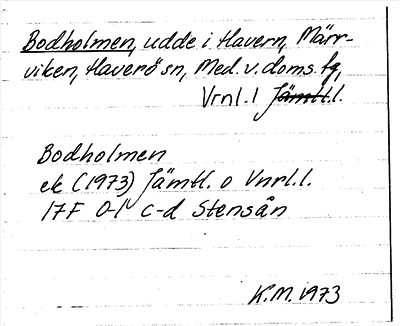 Bodholmen, udde i Havern, Märr-
viken, Haverö sn, Med. v. doms. fg,
Vrnl. l Jämtl.l.
Bodholmen
ek (1973) Jämtl. o Vnrl.l.
17F 0-1 c-d Stensån
K.M. 1973